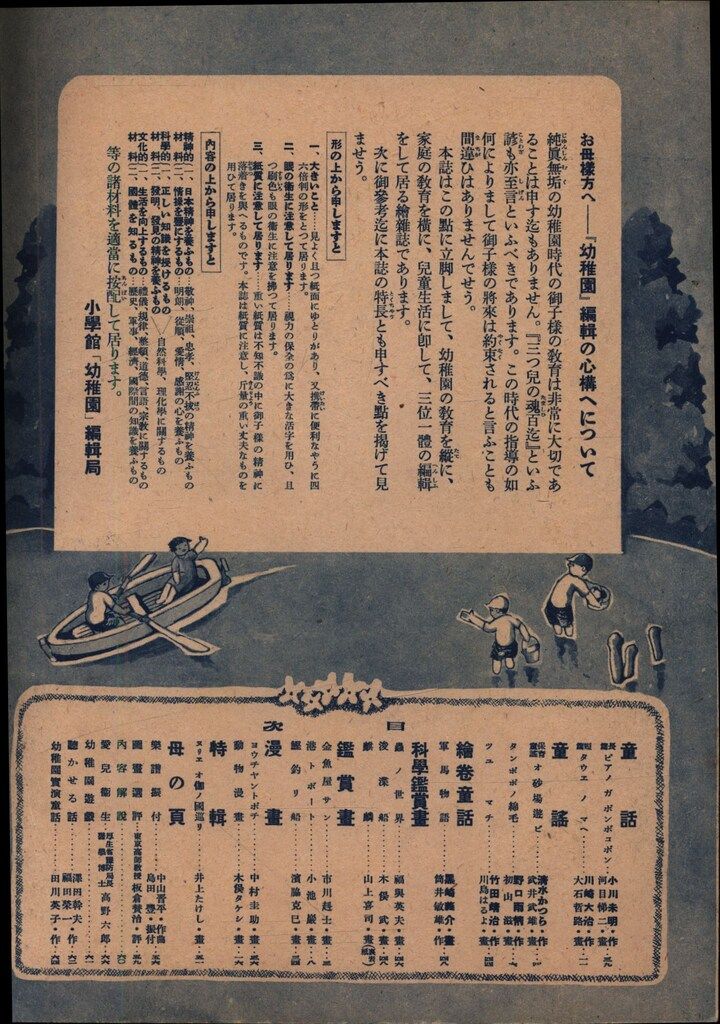 お母樣方へ――『幼稚園』編輯の心構へについて
純眞無垢の幼稚園時代の御子樣の敎育は非常に大切であ
ることは申す迄もありません。『三つ兒の魂百迄』といふ
諺も亦至言といふべきであります。この時代の指導の如
何によりまして御子樣の將來は約束されると言ふことも
間違ひはありませんでせう。
本誌はこの點に立脚しまして、幼稚園の敎育を縱に、
家庭の敎育を橫に、兒童生活に卽して、三位一體の編輯
をして居る繪雜誌であります。
次に御參考迄に本誌の特長とも申すべき點を揭げて見
ませう。
形の上から申しますと
一、大きいこと……見よく且つ紙面にゆとりがあり、又携帶に便利なやうに四
六倍判の形をとつて居ります。
二、眼の衞生に注意して居ります……視力の保全の爲に大きな活字を用ひ、且
つ刷色も眼の衞生に注意を拂つて居ります。
三、紙質に注意して居ります……重い紙質は不知不識の中に御子樣の精神に
落着きを與へるものです。本誌は紙質に注意し、斤量の重い丈夫なものを
用ひて居ります。
內容の上から申しますと
精神的材料
一、日本精神を養ふもの…敬神、崇祖、忠孝、堅忍不拔の精神を養ふもの
二、情操を豐にするもの…明朗、從順、愛情、感謝の心を養ふもの
科學的材料
一、正しい知識を授けるもの
二、發明、發見の精神を養ふもの
自然科學、理化學に關するもの
文化的材料
一、生活を向上するもの…禮儀、規律、整頓、道德、言語、宗敎に關するもの
二、國體を知るもの…歷史、軍事、經濟、國際間の知識を養ふもの
等の諸材料を適當に按配して居ります。
小學館「幼稚園」編輯局
目次
童話
ピアノガ ポンポコポン…小川未明・作 河目悌二・畫
タウエノマヘ…川崎大治・作 大石哲路・畫
童謠
オ砂場遊ビ…淸水かつら・作 武井武雄・畫
タンポポノ綿毛…野口雨情・作 初山滋・畫
ツユノマチ…竹田靖治・作 川島はるよ・畫
繪卷童話
軍馬物語…黑崎義介・畫 筒井敏雄・作
科學鑑賞畫
蟲ノ世界…福與英夫・畫
浚渫船…木俣武・畫
麒麟…山上喜司・畫
鑑賞畫
金魚屋サン…市川赳士・畫
港トボート…小池巖・畫
鰹釣リ船…濱脇克巳・畫
漫畫
ヨウチヤントポチ…中村圭助・畫
動物漫畫…木俣タケシ・畫
特輯
ヌリエ オ伽ノ國巡リ…井上たけし・畫
母の頁
樂譜振付…中山晋平・作曲 島田豐・振付
圖畫選評…東京高師敎授 板倉賛治・評
內容解說
愛兒衞生…厚生省豫防局長 醫學博士 高野六郎
幼稚園遊戲
聽かせる話…澤田幹夫・作 福田榮一・作
幼稚園實演童話…田川英子・作